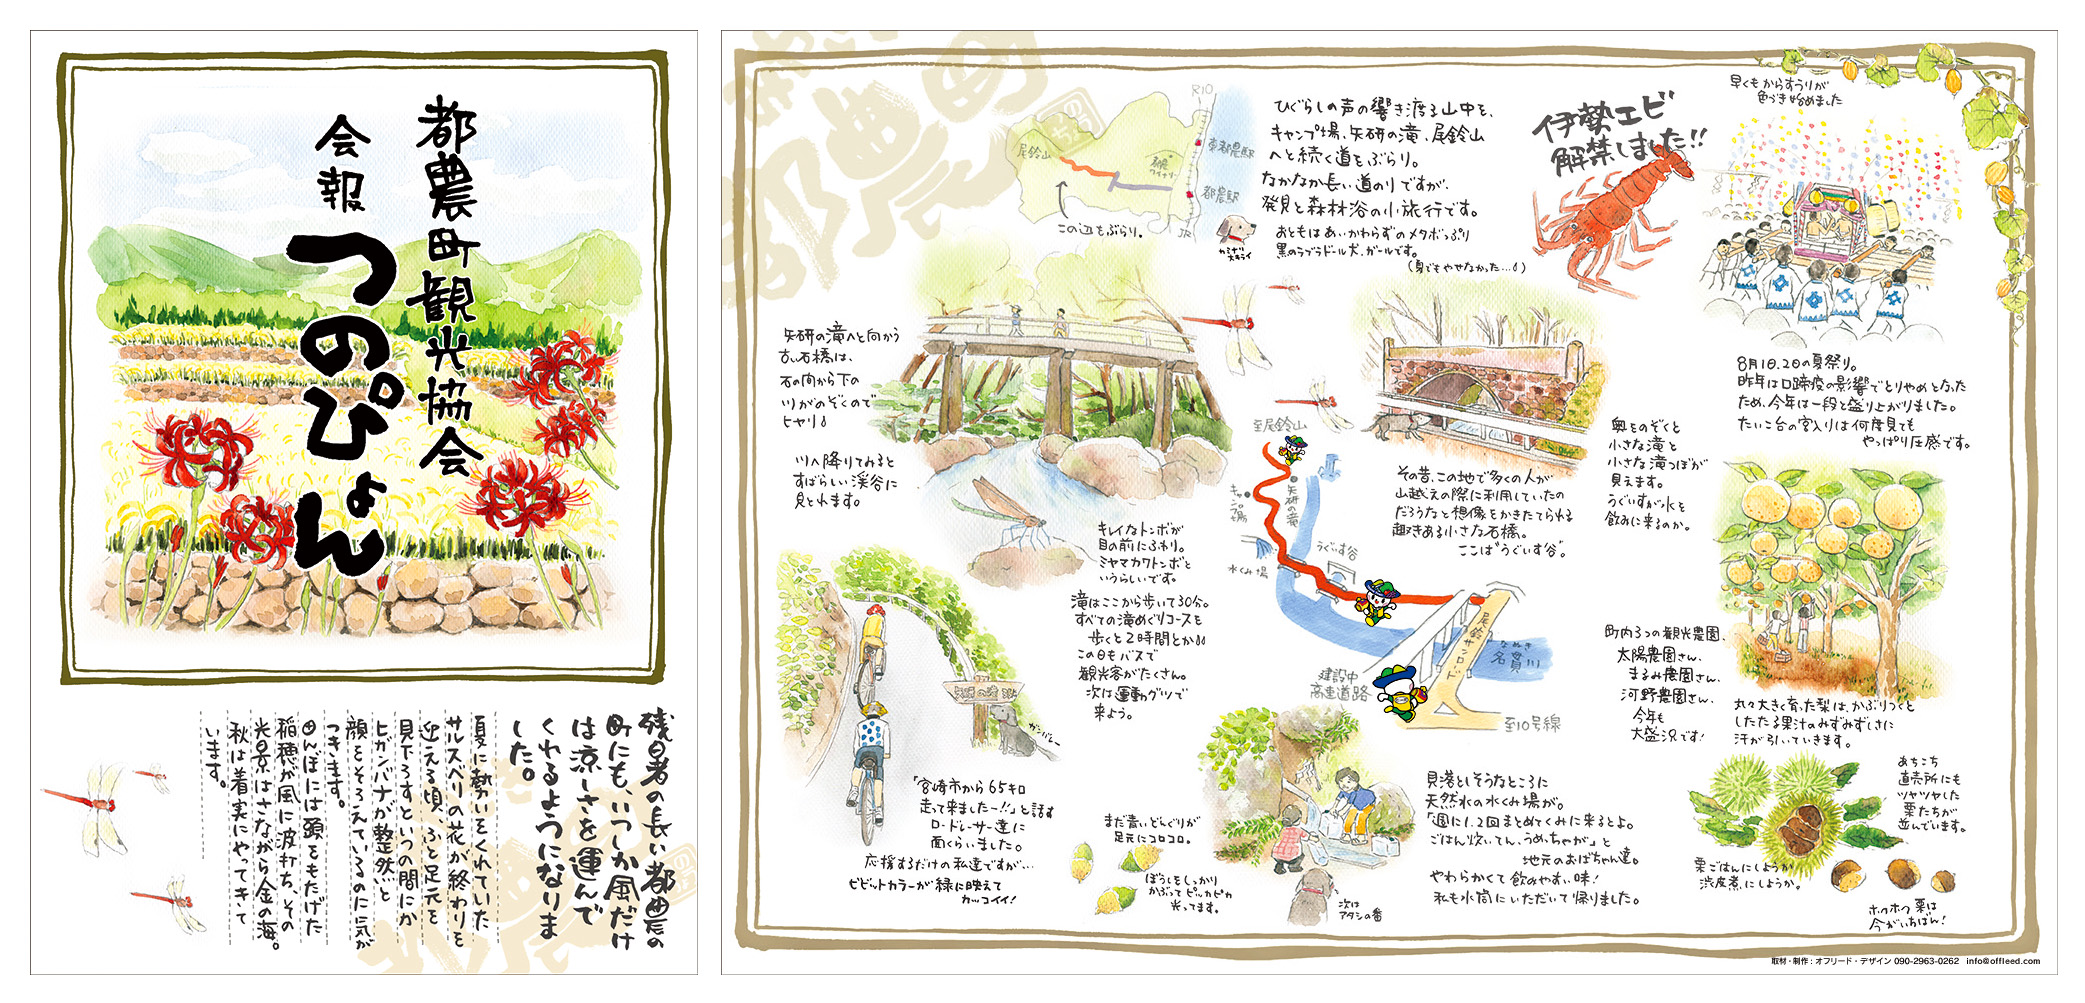 都農町観光協会
会報
つのぴょん
残暑の長い都農の
町にも、いつしか風だけ
は涼しさを運んで
くれるようになりま
した。
夏に勢いをくれていた
サルスベリの花が終わりを
迎える頃、ふと足元を
見下ろすといつの間にか
ヒガンバナが整然と
顔をそろえているのに気が
つきます。
田んぼには頭をもたげた
稲穂が風に波打ち、その
光景はさながら金の海。
秋は着実にやってきて
います。
R10
尾鈴山
東都農駅
都農
ワイナリー
都農駅
JR
この辺をぶらり。
カミナリ
大キライ
ひぐらしの声の響き渡る山中を、
キャンプ場、矢研の滝、尾鈴山
へと続く道をぶらり。
なかなか長い道のりですが、
発見と森林浴の小旅行です。
おともはあいかわらずのメタボっぷり
黒のラブラドール犬、ガールです。
(夏でもやせなかった…)
伊勢エビ
解禁しました!!
早くもからすうりが
色づき始めました
8月1日.2日の夏祭り。
昨年は口蹄疫の影響でとりやめとなった
ため、今年は一段と盛り上がりました。
たいこ台の宮入りは何度見ても
やっぱり圧感です。
矢研の滝へと向かう
古い石橋は、
石の間から下の
川がのぞくので
ヒヤリ
川へ降りてみると
すばらしい渓谷に
見とれます。
キレイなトンボが
目の前にふわり。
ミヤマカワトンボと
いうらしいです。
滝はここから歩いて30分。
すべての滝めぐりコースを
歩くと2時間とか
この日もバスで
観光客がたくさん。
次は運動グツで
来よう。
至尾鈴山
キャンプ場
矢研の滝
水くみ場
うぐいす谷
尾鈴サンロード
なぬき
名貫川
建設中
高速道路
至10号線
その昔、この地で多くの人が
山越えの際に利用していたの
だろうなと想像をかきたてられる
趣きある小さな石橋。
ここは"うぐいす谷"。
奥をのぞくと
小さな滝と
小さな滝つぼが
見えます。
うぐいすが水を
飲みに来るのか。
町内3つの観光農園、
太陽農園さん、
まるみ農園さん、
河野農園さん、
今年も
大盛況です!
丸々大きく育った梨は、かぶりつくと
したたる果汁のみずみずしさに
汗が引いていきます。
矢研の滝
ガンバレー
「宮崎市から65キロ
走って来ましたー!!」と話す
ロードレーサー達に
面くらいました。
応援するだけの私達ですが…
ビビットカラーが緑に映えて
カッコイイ!
まだ青いどんぐりが
足元にコロコロ。
ぼうしをしっかり
かぶってピッカピカ
光ってます。
次は
アタシの番
見落としそうなところに
天然水の水くみ場が。
「週に1.2回まとめてくみに来るとよ。
ごはん炊いてん、うめっちゃが」と
地元のおばちゃん達。
やわらかくて飲みやすい味!
私も水筒にいただいて帰りました。
あちこち
直売所にも
ツヤツヤした
栗たちが
並んでいます。
栗ごはんにしようか、
渋皮煮にしようか。
ホクホク栗は
今がいちばん!
取材・制作：オフリード・デザイン 090-2963-0262 info@offleed.com